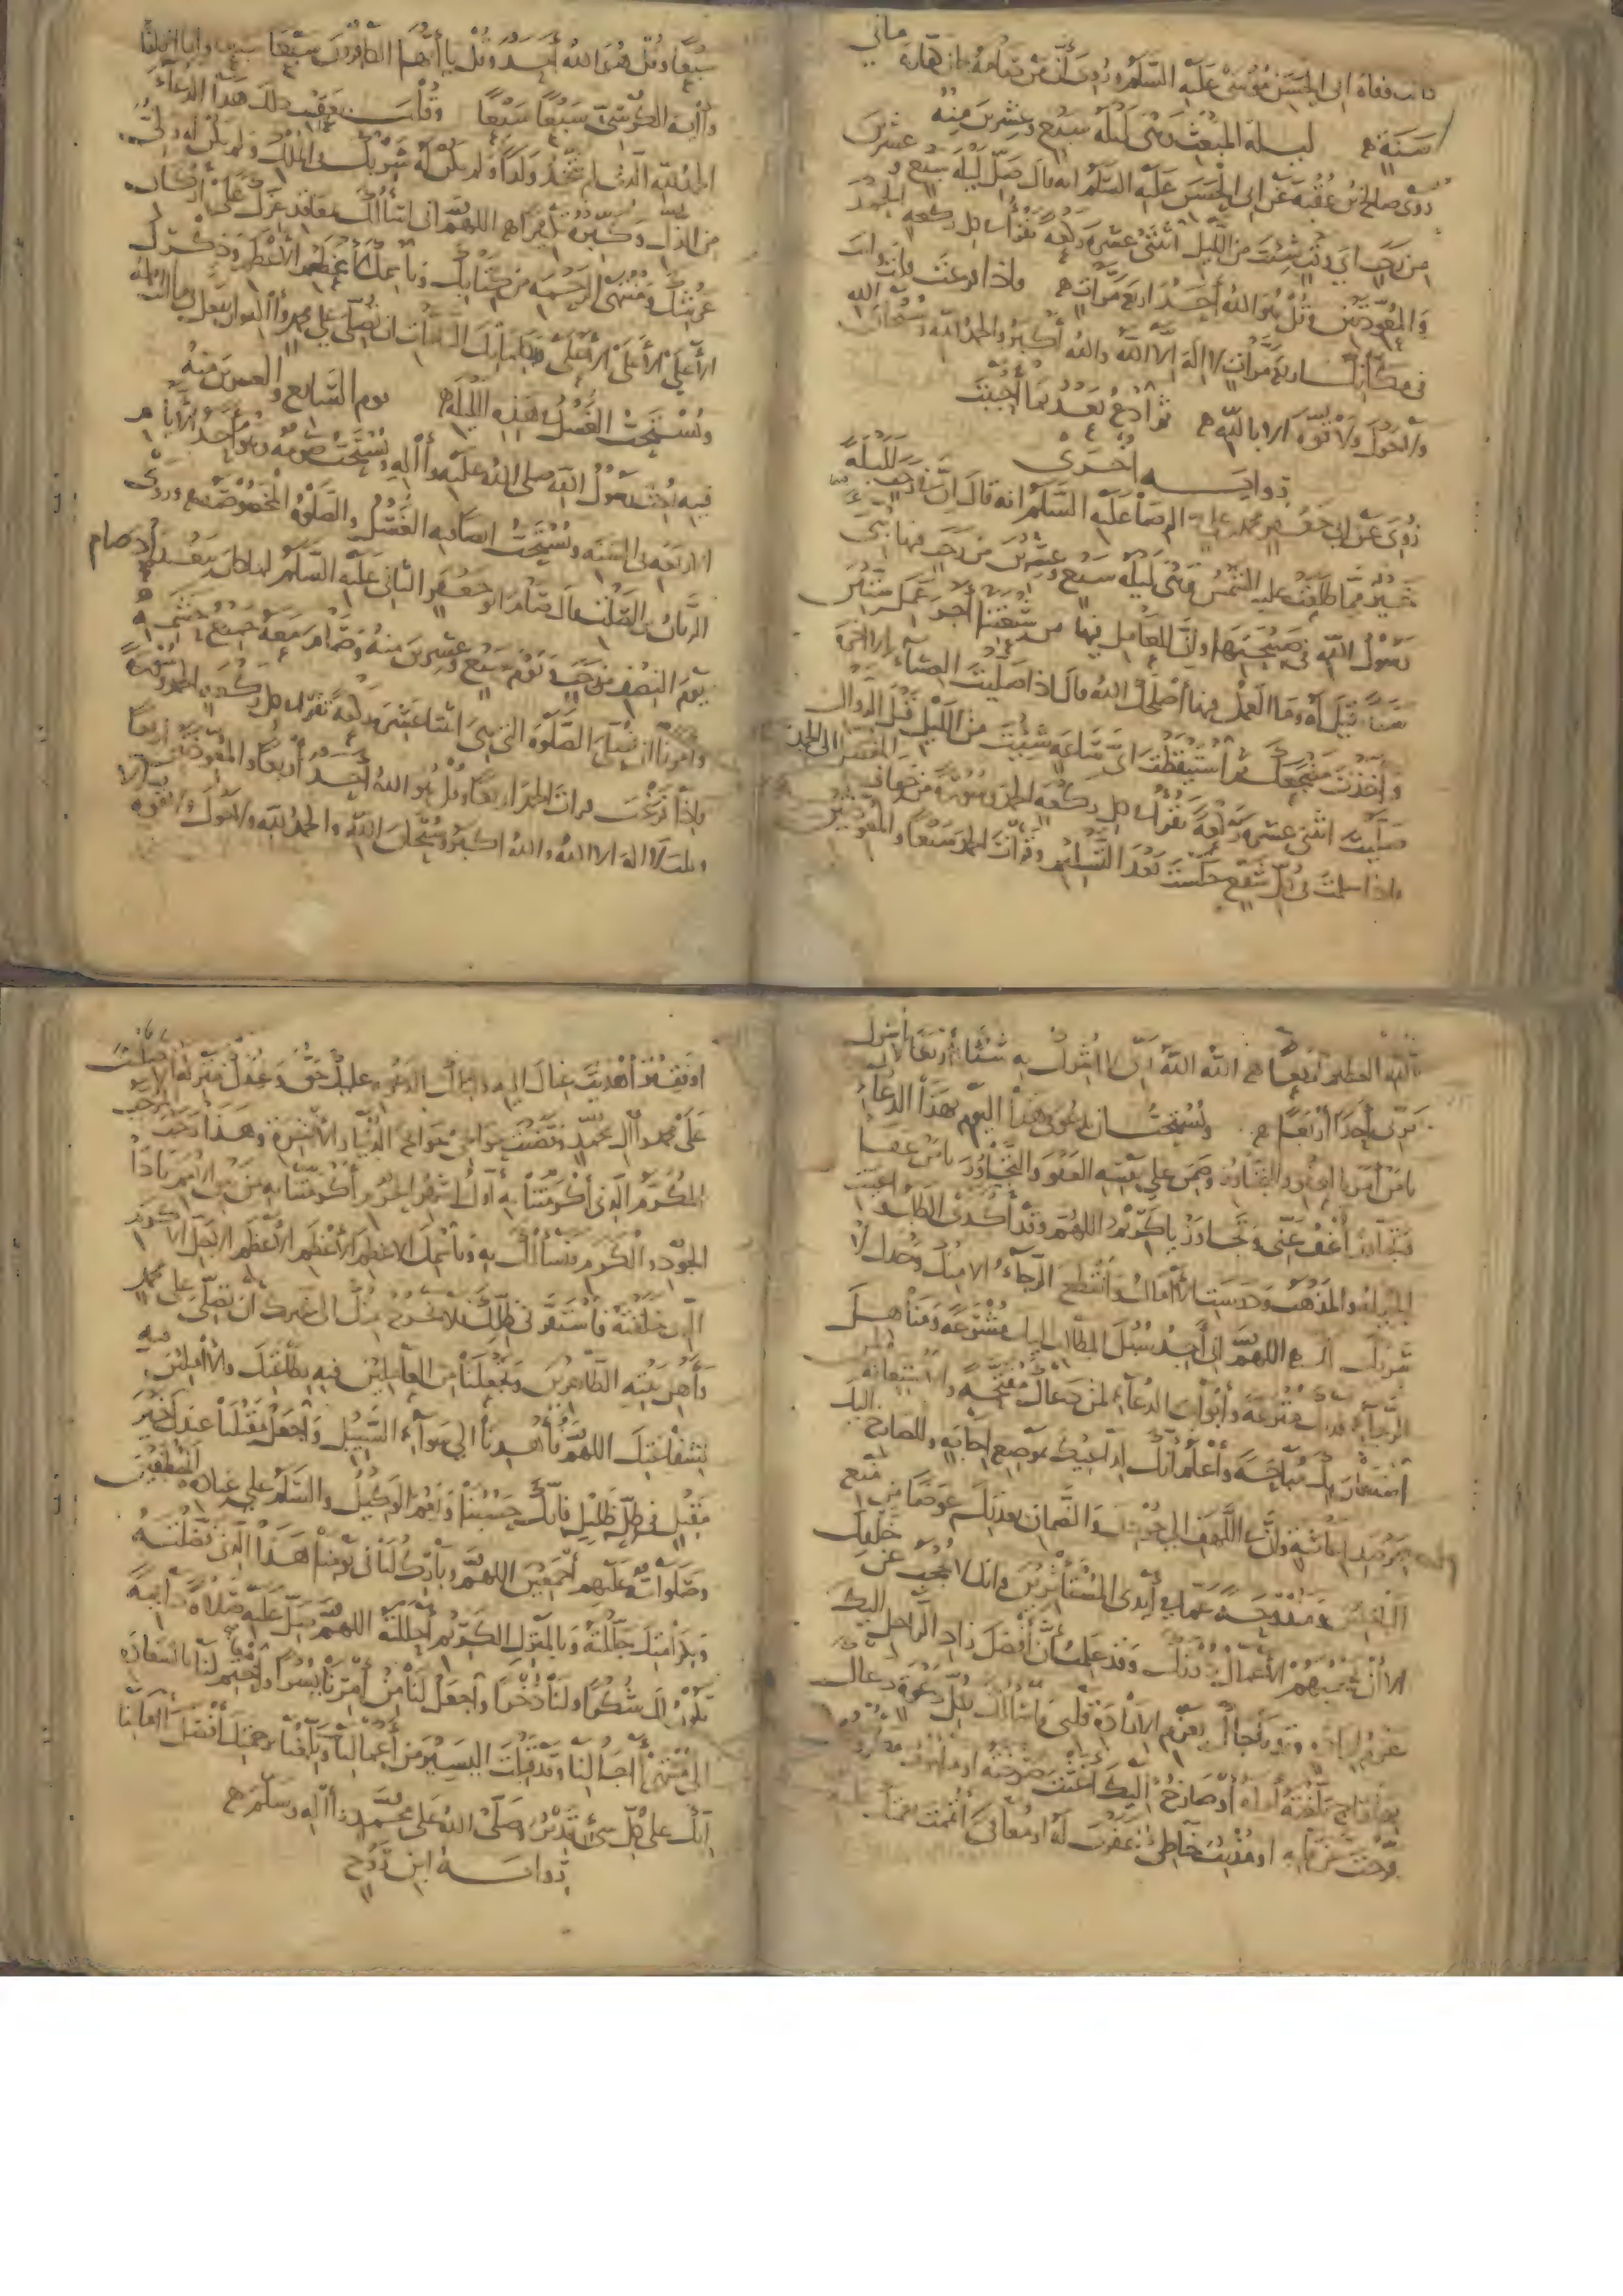 كانت وفاة ابى الحسن موسى عليه السلم وروى أن من صامه كان كفارة مائتي
سنة ليلة المبعث وهى ليلة سبع وعشرين منه
روى صالح بن عقبة عن ابى الحسن عليه السلم انه قال صل ليلة سبع وعشرين
من رجب اى وقت شئت من الليل اثنتى عشرة ركعة تقرأ فى كل ركعة الحمد
والمعوذتين وقل هو الله أحد اربع مرات فاذا فرغت قلت وانت
فى مكانك اربع مرات لا اله الا الله والله أكبر والحمد لله وسبحان الله
ولا حول ولا قوة الا بالله ثم ادع بعد بما أحببت
رواية اخرى
روى عن ابى جعفر محمد بن على الرضا عليه السلم انه قال ان فى رجب لليلة
خير مما طلعت عليه الشمس وهى ليلة سبع وعشرين من رجب فيها نبئ
رسول الله فى صبيحتها وان للعامل فيها من شيعتنا أجر عمل ستين
سنة قيل له وما العمل فيها أصلحك الله قال اذا صليت العشاء الاخرة
واخذت مضجعك ثم استيقظت اى ساعة شئت من الليل قبل الزوال
صليت اثنتى عشرة ركعة تقرأ فى كل ركعة الحمد وسورة من خفاف المفصل الى الجحد
فاذا سلمت فى كل شفع جلست بعد التسليم وقرأت الحمد سبعا والمعوذتين
سبعا وقل هو الله أحد وقل يا أيها الكافرون سبعا سبعا وانا انزلناه
وآية الكرسى سبعا سبعا وقلت بعقب ذلك هذا الدعاء
الحمد لله الذى لم يتخذ ولدا ولم يكن له شريك فى الملك ولم يكن له ولى
من الذل وكبره تكبيرا اللهم انى اسألك بمعاقد عزك على أركان
عرشك ومنتهى الرحمة من كتابك وباسمك الأعظم الأعظم وذكرك
الأعلى الأعلى الأعلى وبكلماتك التامات ان تصلى على محمد وآله وان تفعل بى ما انت اهله
ويستحب الغسل فى هذه الليلة يوم السابع والعشرين منه
فيه بعث رسول الله صلى الله عليه وآله ويستحب صومه وهو أحد الأيام
الاربعة فى السنة ويستحب ايضا فيه الغسل والصلوة المخصوصة وروى
الريان بن الصلت قال صام ابو جعفر الثانى عليه السلم لما كان ببغداد صام
يوم النصف من رجب ويوم سبع وعشرين منه وصام معه جميع حشمه
وأمرنا ان نصلى الصلوة التى هى اثنتا عشرة ركعة تقرأ فى كل ركعة الحمد وسورة
فاذا فرغت قرأت الحمد اربعا وقل هو الله أحد أربعا والمعوذتين اربعا
وقلت لا اله الا الله والله اكبر وسبحان الله والحمد لله ولا حول ولا قوة الا
بالله العظيم أربعا الله الله ربى لا اشرك به شيئا أربعا لا أشرك
بربى أحدا أربعا ويستحب ان يدعو فى هذا اليوم بهذا الدعاء
يا من أمر بالعفو والتجاوز وضمن على نفسه العفو والتجاوز يا من عفا
وتجاوز أعف عنى وتجاوز يا كريم اللهم وقد أكدى الطلب واعيت
الحيلة والمذهب ودرست الآمال وانقطع الرجاء الا منك وحدك لا
شريك لك اللهم انى أجد سبل المطالب اليك مشترعة ومناهل
الرجاء لديك مترعة وأبواب الدعاء لمن دعاك مفتحة والاستعانة
لمن استعان بك مباحة وأعلم أنك لداعيك بموضع اجابة وللصارخ اليك
بمرصد اغاثة وان فى اللهف الى جودك والضمان بعدتك عوضا من منع
الباخلين ومندوحة عما فى أيدى المستأثرين وانك لا تحجب عن خلقك
الا أن تحجبهم الأعمال دونك وقد علمت أن أفضل زاد الراحل اليك
عزم ارادة وقد ناجاك بعزم الارادة قلبى واسألك بكل دعوة دعاك
بها راج بلغته أمله أو صارخ اليك أغثت صرخته او ملهوف مكروب
فرجت عن قلبه او مذنب خاطئ غفرت له او معافى أتممت نعمتك عليه
او فقير أهديت غناك اليه ولتلك الدعوة عليك حق وعندك منزلة الا صليت
على محمد وآل محمد وقضيت حوائجى حوائج الدنيا والآخرة وهذا رجب
المكرم الذى أكرمتنا به أول اشهر الحرم أكرمتنا به من بين الامم يا ذا
الجود والكرم فنسألك به وباسمك الاعظم الأعظم الأعظم الأجل الأكرم
الذى خلقته فاستقر فى ظلك فلا يخرج منك الى غيرك ان تصلى على محمد
وأهل بيته الطاهرين وتجعلنا من العاملين فيه بطاعتك والآملين فيه
بشفاعتك اللهم فاهدنا الى سواء السبيل واجعل مقيلنا عندك خير
مقيل فى ظل ظليل فانك حسبنا ونعم الوكيل والسلم على عباده المصطفين
وصلواته عليهم أجمعين اللهم وبارك لنا فى يومنا هذا الذى فضلته
وبكرامتك جللته وبالمنزل الكريم أحللته اللهم صل عليه صلاة دائمة
تكون لك شكرا ولنا ذخرا واجعل لنا من أمرنا يسرا واختم لنا بالسعادة
الى منتهى آجالنا وقد قبلت اليسير من أعمالنا وبلغتنا برحمتك أفضل آمالنا
انك على كل شئ قدير وصلى الله على محمد وآله وسلم
رواية ابن روح